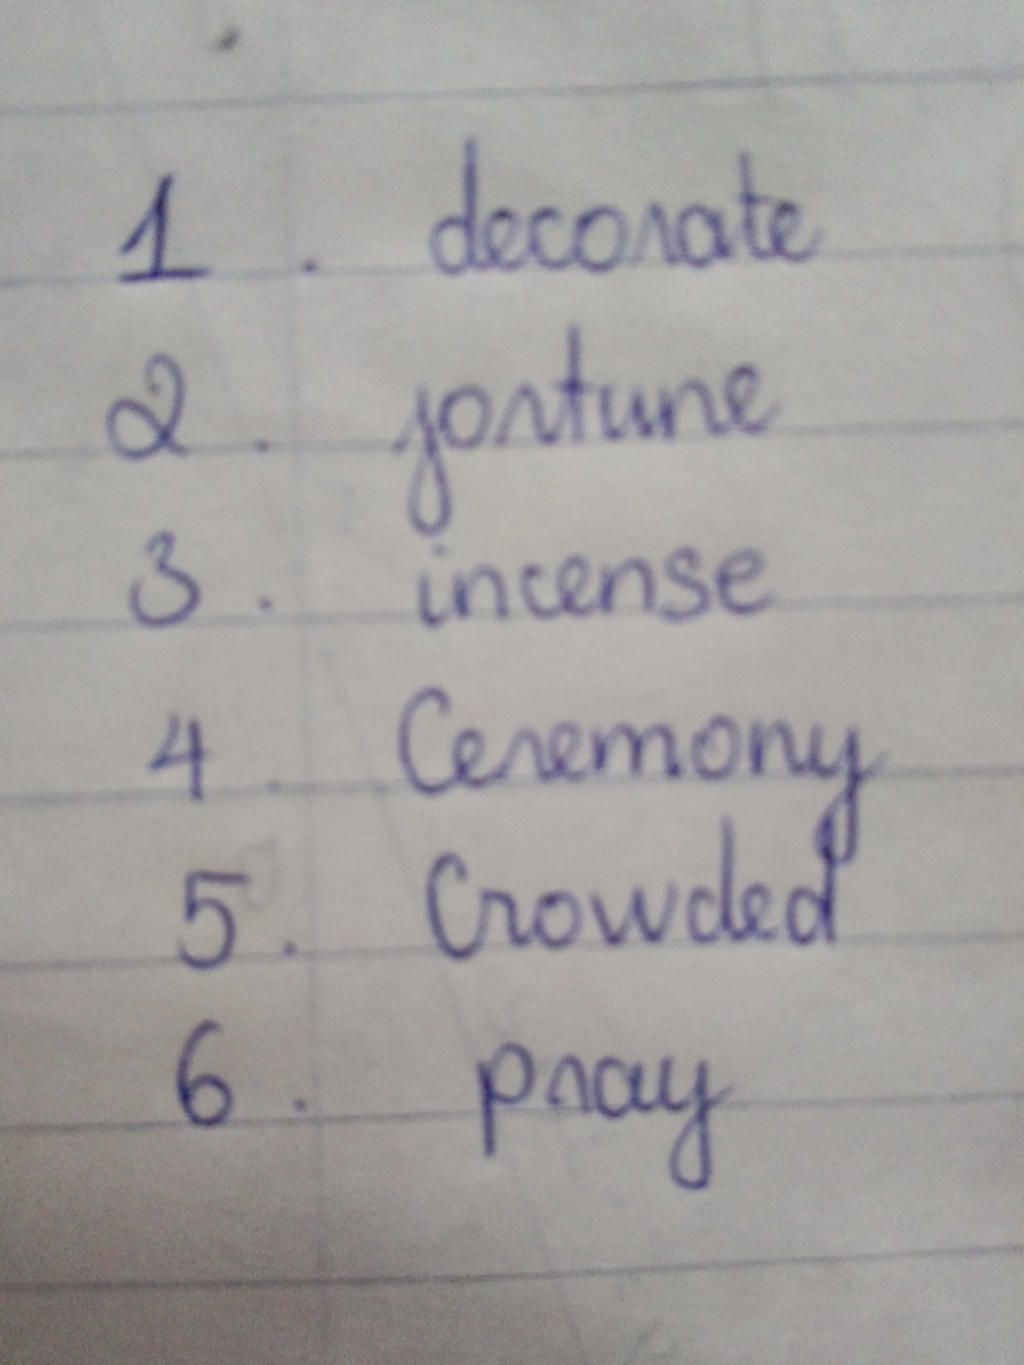 1. decorate
2. fortune
3. incense
4. Ceremony
5. Crowded
6. pray